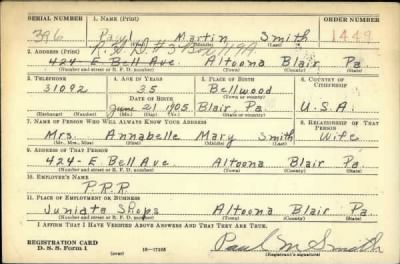 SERIAL NUMBER 1. NAME (Print) ORDER NUMBER
396 Paul Martin Smith 1449
(First) (Middle) (Last)
R. F. D. #3 Box 119A
2. ADDRESS (Print)
424- E. Bell Ave. Altoona Blair Pa.
(Number and street or R. F. D. number) (Town) (County) (State)
3. TELEPHONE 4. AGE IN YEARS 5. PLACE OF BIRTH 6. COUNTRY OF CITIZENSHIP
31092 35 Bellwood
DATE OF BIRTH (Town or county)
June 21 1905 Blair, Pa. U.S.A.
(Exchange) (Number) (Mo.) (Day) (Yr.) (State or country)
7. NAME OF PERSON WHO WILL ALWAYS KNOW YOUR ADDRESS 8. RELATIONSHIP OF THAT PERSON
Mrs. Annabelle Mary Smith Wife
(Mr., Mrs., Miss) (First) (Middle) (Last)
9. ADDRESS OF THAT PERSON
424- E. Bell Ave Altoona Blair Pa.
(Number and street or R. F. D. number) (Town) (County) (State)
10. EMPLOYER'S NAME
P.R.R
11. PLACE OF EMPLOYMENT OR BUSINESS
Juniata Shops Altoona Blair Pa.
(Number and street or R. F. D. number) (Town) (County) (State)
I AFFIRM THAT I HAVE VERIFIED ABOVE ANSWERS AND THAT THEY ARE TRUE.
REGISTRATION CARD
D. S. S. Form 1 (over) 16-17105 Paul M Smith
(Registrant's signature)